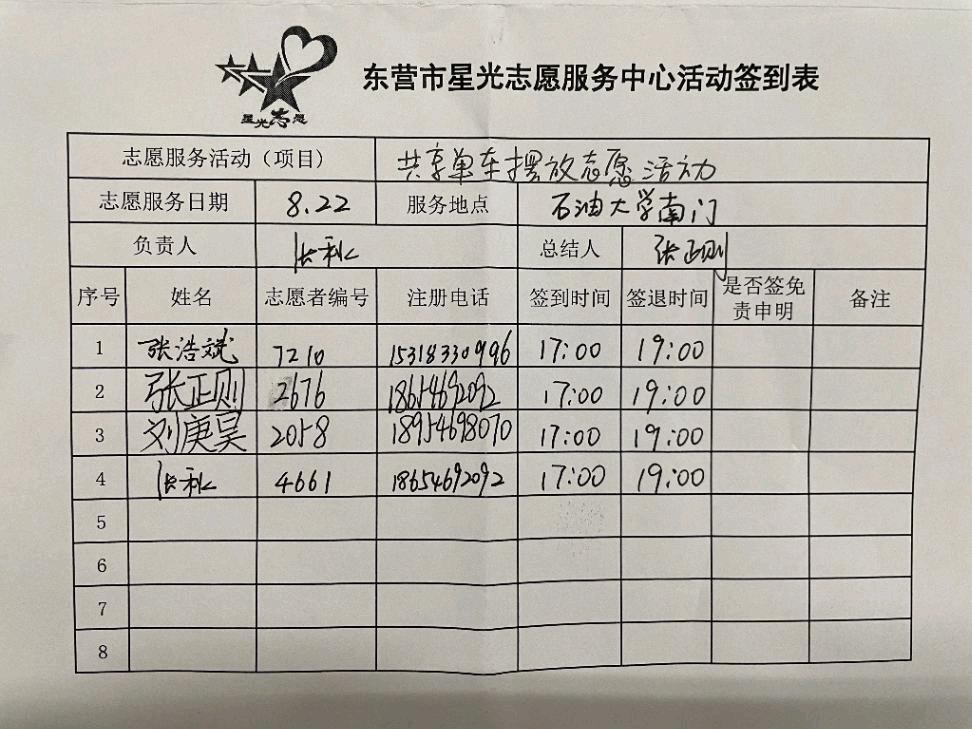 星光志愿
东营市星光志愿服务中心活动签到表
志愿服务活动（项目） 共享单车摆放志愿活动
志愿服务日期 8.22 服务地点 石油大学南门
负责人 张秋 总结人 张正则
序号 姓名 志愿者编号 注册电话 签到时间 签退时间 是否签免责申明 备注
1 张浩斌 7210 15318330996 17:00 19:00
2 张正则 2676 18654692092 17:00 19:00
3 刘庚昊 2058 18954698070 17:00 19:00
4 张秋 4661 18654692092 17:00 19:00
5
6
7
8